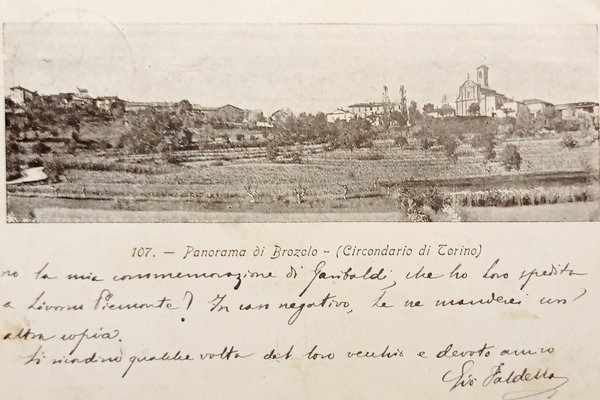 107. — Panorama di Brozolo - (Circondario di Torino)
no la mia commemorazione di Garibaldi, che ho loro spedita
a Livorno Piemonte? In caso negativo, Le ne manderei un'
altra copia.
Si ricordino qualche volta del loro vecchio e devoto amico
Gio Faldella